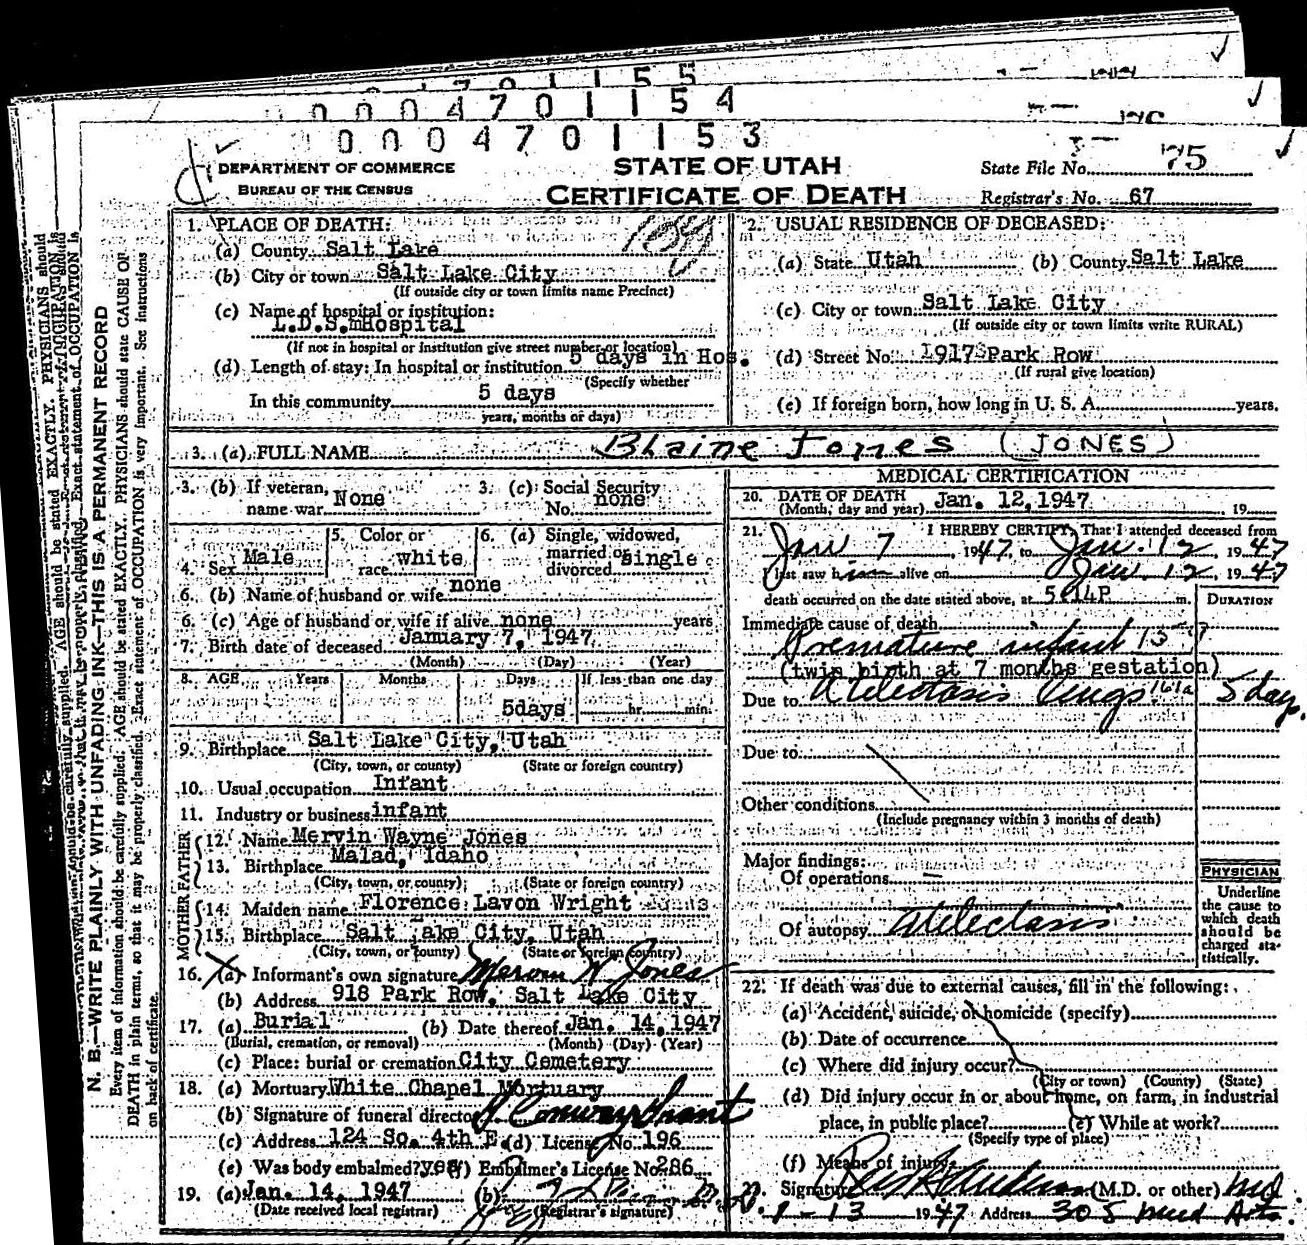 0004701154
0004701153
DEPARTMENT OF COMMERCE
BUREAU OF THE CENSUS
STATE OF UTAH
CERTIFICATE OF DEATH
State File No. 75
Registrar's No. 67
1. PLACE OF DEATH:
(a) County Salt Lake
(b) City or town Salt Lake City
(If outside city or town limits name Precinct)
(c) Name of hospital or institution:
L.D.S.mHospital
(If not in hospital or institution give street number or location)
(d) Length of stay: In hospital or institution 5 days in Hos.
(Specify whether
In this community 5 days
years, months or days)
2. USUAL RESIDENCE OF DECEASED:
(a) State Utah (b) County Salt Lake
(c) City or town Salt Lake City
(If outside city or town limits write RURAL)
(d) Street No. 1917 Park Row
(If rural give location)
(e) If foreign born, how long in U. S. A. years.
3. (a) FULL NAME Blaine Jones (JONES)
3. (b) If veteran, name war None
3. (c) Social Security No. none
4. Sex Male
5. Color or race white
6. (a) Single, widowed, married or divorced single
6. (b) Name of husband or wife none
6. (c) Age of husband or wife if alive none years
7. Birth date of deceased January 7, 1947
(Month) (Day) (Year)
8. AGE Years Months Days If less than one day
5days hr. min.
9. Birthplace Salt Lake City, Utah
(City, town, or county) (State or foreign country)
10. Usual occupation Infant
11. Industry or business infant
FATHER
12. Name Mervin Wayne Jones
13. Birthplace Malad, Idaho
(City, town, or county) (State or foreign country)
MOTHER
14. Maiden name Florence Lavon Wright
15. Birthplace Salt Lake City, Utah
(City, town, or county) (State or foreign country)
16. (a) Informant's own signature Mervin W Jones
(b) Address 918 Park Row, Salt Lake City
17. (a) Burial (b) Date thereof Jan. 14, 1947
(Burial, cremation, or removal) (Month) (Day) (Year)
(c) Place: burial or cremation City Cemetery
18. (a) Mortuary White Chapel Mortuary
(b) Signature of funeral director
(c) Address 124 So. 4th E. (d) License No. 196
(e) Was body embalmed? yes (f) Embalmer's License No. 286
19. (a) Jan. 14, 1947 (b)
(Date received local registrar) (Registrar's signature)
MEDICAL CERTIFICATION
20. DATE OF DEATH Jan. 12, 1947
(Month, day and year) 19
21. I HEREBY CERTIFY, That I attended deceased from
Jan 7 1947, to Jan. 12, 1947
I last saw him alive on Jan. 12, 1947
death occurred on the date stated above, at m.
DURATION
Immediate cause of death
Premature infant
(twin birth at 7 months gestation)
Due to Atelectasis lungs 161a 5 days.
Due to
Other conditions
(Include pregnancy within 3 months of death)
Major findings:
Of operations —
Of autopsy Atelectasis
PHYSICIAN
Underline
the cause to
which death
should be
charged sta-
tistically.
22. If death was due to external causes, fill in the following:
(a) Accident, suicide, or homicide (specify)
(b) Date of occurrence
(c) Where did injury occur?
(City or town) (County) (State)
(d) Did injury occur in or about home, on farm, in industrial
place, in public place? (e) While at work?
(Specify type of place)
(f) Means of injury
Signature (M.D. or other) MD
1-13 1947 Address 305 Med Arts.
N. B.—WRITE PLAINLY WITH UNFADING INK—THIS IS A PERMANENT RECORD
Every item of information should be carefully supplied. AGE should be stated EXACTLY. PHYSICIANS should state CAUSE OF
DEATH in plain terms, so that it may be properly classified. Exact statement of OCCUPATION is very important. See instructions
on back of certificate.